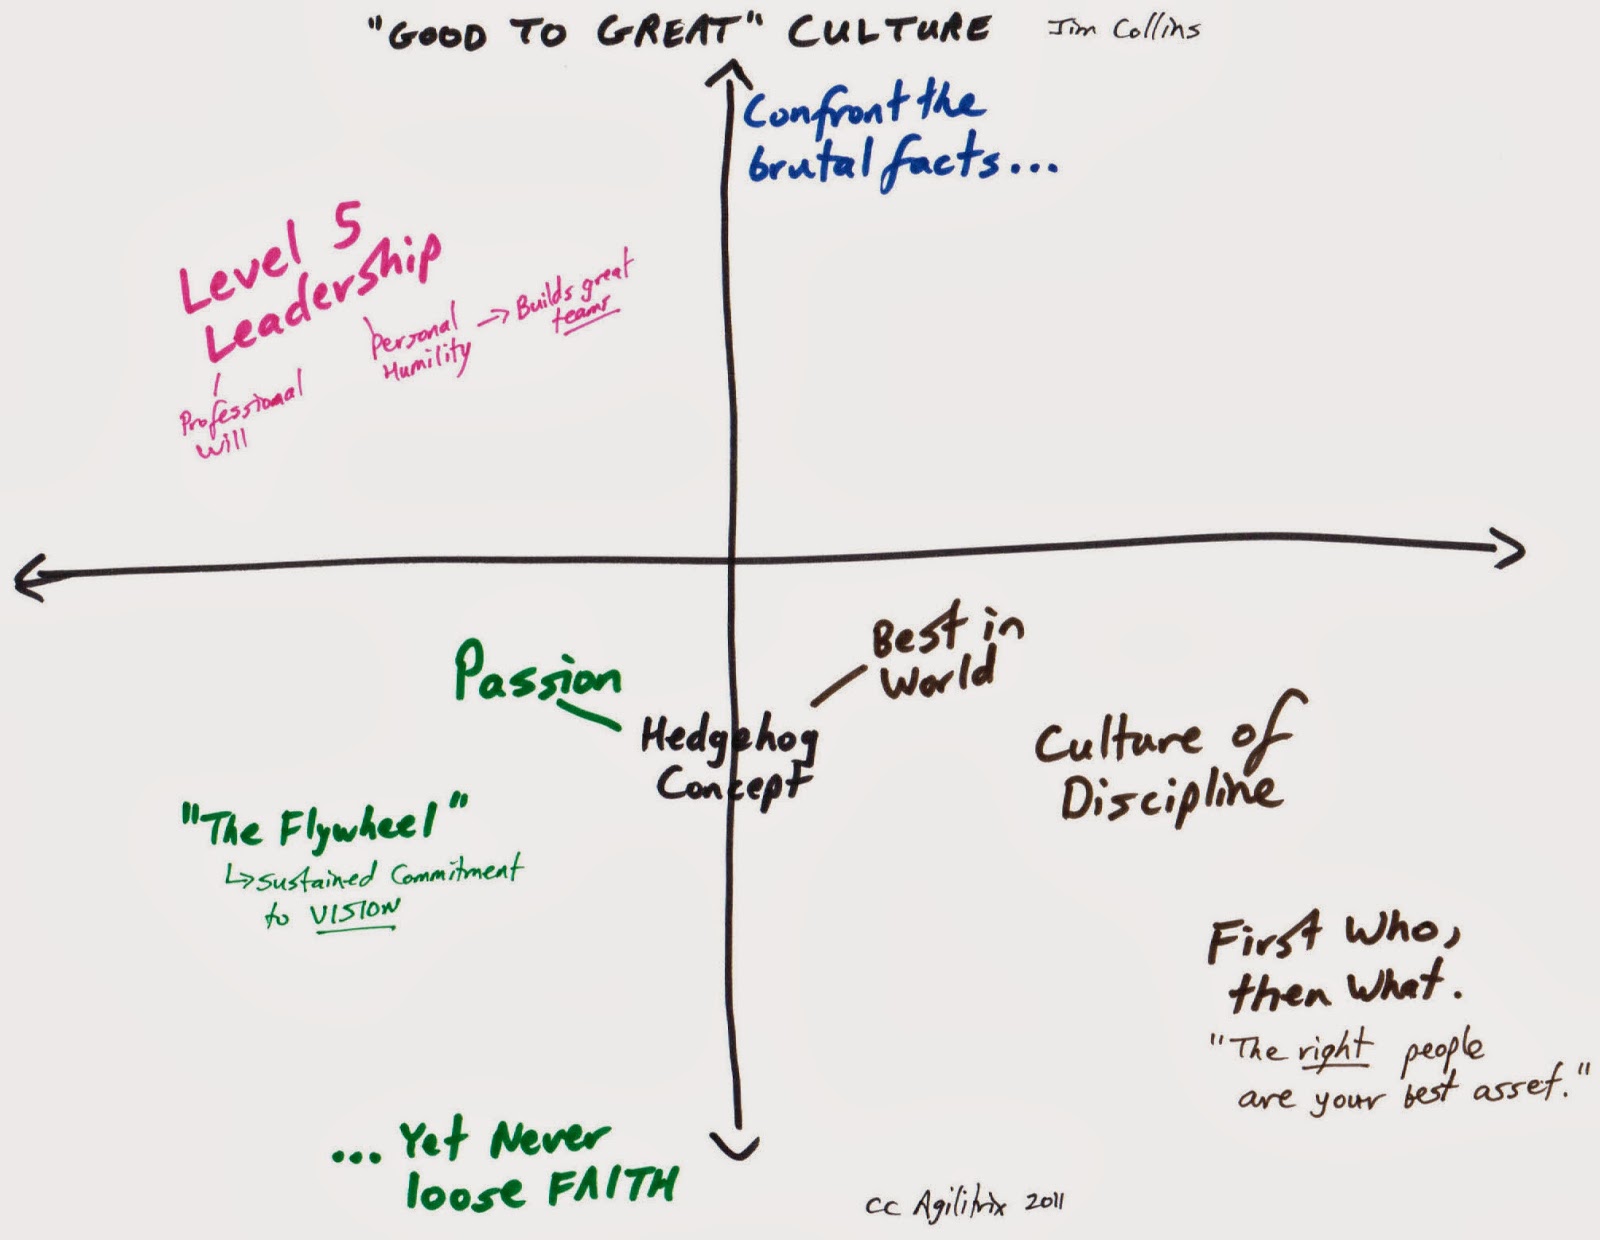 "GOOD TO GREAT" CULTURE Jim Collins
Confront the
brutal facts...
Level 5
Leadership
Personal
Humility
→ Builds great
teams
Professional
Will
Passion
Best in
World
Hedgehog
Concept
Culture of
Discipline
"The Flywheel"
↳ sustained Commitment
to VISION
First Who,
then What.
"The right people
are your best asset."
... Yet Never
loose FAITH
cc Agilitrix 2011